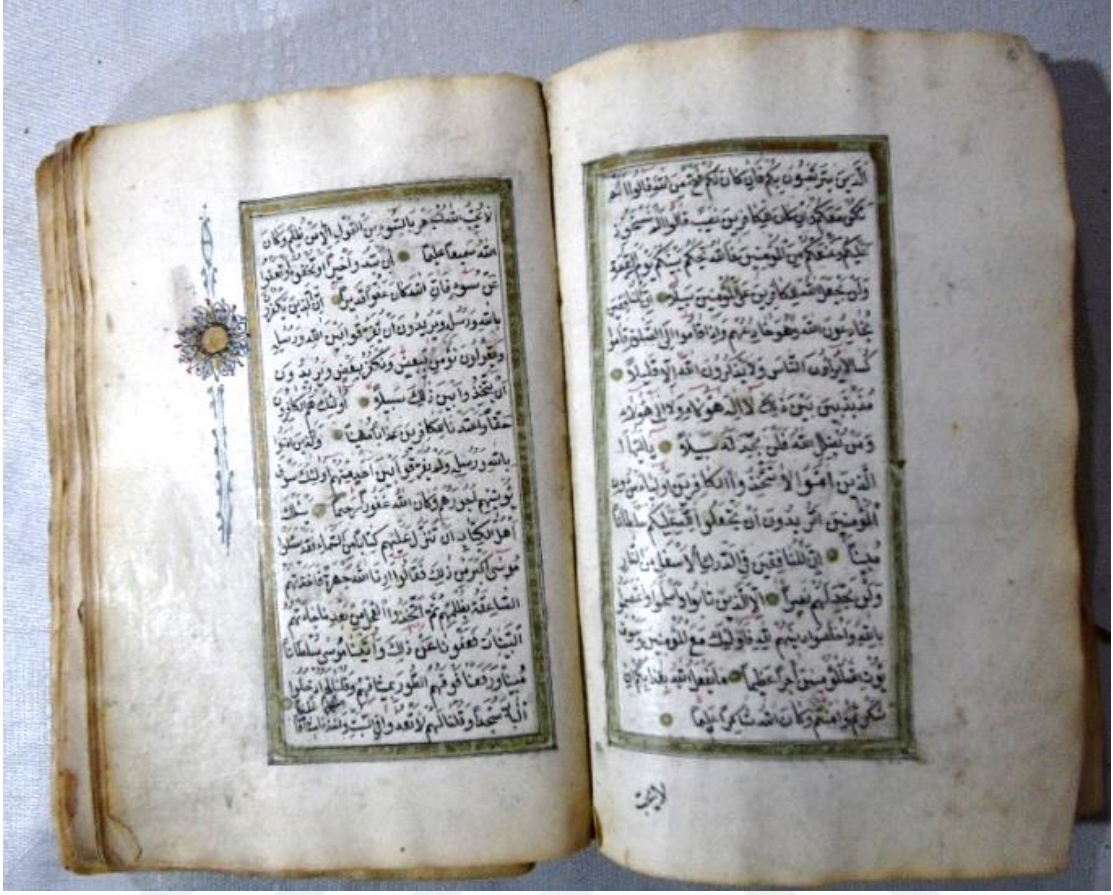 الَّذِينَ يَتَرَبَّصُونَ بِكُمْ فَإِنْ كَانَ لَكُمْ فَتْحٌ مِنَ اللَّهِ قَالُوا أَلَمْ
نَكُنْ مَعَكُمْ وَإِنْ كَانَ لِلْكَافِرِينَ نَصِيبٌ قَالُوا أَلَمْ نَسْتَحْوِذْ
عَلَيْكُمْ وَنَمْنَعْكُمْ مِنَ الْمُؤْمِنِينَ فَاللَّهُ يَحْكُمُ بَيْنَكُمْ يَوْمَ الْقِيَمَةِ
وَلَنْ يَجْعَلَ اللَّهُ لِلْكَافِرِينَ عَلَى الْمُؤْمِنِينَ سَبِيلًا إِنَّ الْمُنَافِقِينَ
يُخَادِعُونَ اللَّهَ وَهُوَ خَادِعُهُمْ وَإِذَا قَامُوا إِلَى الصَّلَوةِ قَامُوا
كُسَالَى يُرَاؤُنَ النَّاسَ وَلَا يَذْكُرُونَ اللَّهَ إِلَّا قَلِيلًا
مُذَبْذَبِينَ بَيْنَ ذَلِكَ لَا إِلَى هَؤُلَاءِ وَلَا إِلَى هَؤُلَاءِ
وَمَنْ يُضْلِلِ اللَّهُ فَلَنْ تَجِدَ لَهُ سَبِيلًا يَا أَيُّهَا
الَّذِينَ آمَنُوا لَا تَتَّخِذُوا الْكَافِرِينَ أَوْلِيَاءَ مِنْ دُونِ
الْمُؤْمِنِينَ أَتُرِيدُونَ أَنْ تَجْعَلُوا لِلَّهِ عَلَيْكُمْ سُلْطَانًا
مُبِينًا إِنَّ الْمُنَافِقِينَ فِي الدَّرْكِ الْأَسْفَلِ مِنَ النَّارِ
وَلَنْ تَجِدَ لَهُمْ نَصِيرًا إِلَّا الَّذِينَ تَابُوا وَأَصْلَحُوا وَاعْتَصَمُوا
بِاللَّهِ وَأَخْلَصُوا دِينَهُمْ لِلَّهِ فَأُولَئِكَ مَعَ الْمُؤْمِنِينَ وَسَوْفَ
يُؤْتِ اللَّهُ الْمُؤْمِنِينَ أَجْرًا عَظِيمًا مَا يَفْعَلُ اللَّهُ بِعَذَابِكُمْ إِنْ
شَكَرْتُمْ وَآمَنْتُمْ وَكَانَ اللَّهُ شَاكِرًا عَلِيمًا
لَا يُحِبُّ
لَا يُحِبُّ اللَّهُ الْجَهْرَ بِالسُّوءِ مِنَ الْقَوْلِ إِلَّا مَنْ ظُلِمَ وَكَانَ
اللَّهُ سَمِيعًا عَلِيمًا إِنْ تُبْدُوا خَيْرًا أَوْ تُخْفُوهُ أَوْ تَعْفُوا
عَنْ سُوءٍ فَإِنَّ اللَّهَ كَانَ عَفُوًّا قَدِيرًا إِنَّ الَّذِينَ يَكْفُرُونَ
بِاللَّهِ وَرُسُلِهِ وَيُرِيدُونَ أَنْ يُفَرِّقُوا بَيْنَ اللَّهِ وَرُسُلِهِ
وَيَقُولُونَ نُؤْمِنُ بِبَعْضٍ وَنَكْفُرُ بِبَعْضٍ وَيُرِيدُونَ
أَنْ يَتَّخِذُوا بَيْنَ ذَلِكَ سَبِيلًا أُولَئِكَ هُمُ الْكَافِرُونَ
حَقًّا وَأَعْتَدْنَا لِلْكَافِرِينَ عَذَابًا مُهِينًا وَالَّذِينَ آمَنُوا
بِاللَّهِ وَرُسُلِهِ وَلَمْ يُفَرِّقُوا بَيْنَ أَحَدٍ مِنْهُمْ أُولَئِكَ سَوْفَ
يُؤْتِيهِمْ أُجُورَهُمْ وَكَانَ اللَّهُ غَفُورًا رَحِيمًا يَسْئَلُكَ
أَهْلُ الْكِتَابِ أَنْ تُنَزِّلَ عَلَيْهِمْ كِتَابًا مِنَ السَّمَاءِ فَقَدْ سَأَلُوا
مُوسَى أَكْبَرَ مِنْ ذَلِكَ فَقَالُوا أَرِنَا اللَّهَ جَهْرَةً فَأَخَذَتْهُمُ
الصَّاعِقَةُ بِظُلْمِهِمْ ثُمَّ اتَّخَذُوا الْعِجْلَ مِنْ بَعْدِ مَا جَاءَتْهُمُ
الْبَيِّنَاتُ فَعَفَوْنَا عَنْ ذَلِكَ وَآتَيْنَا مُوسَى سُلْطَانًا
مُبِينًا وَرَفَعْنَا فَوْقَهُمُ الطُّورَ بِمِيثَاقِهِمْ وَقُلْنَا لَهُمُ ادْخُلُوا
الْبَابَ سُجَّدًا وَقُلْنَا لَهُمْ لَا تَعْدُوا فِي السَّبْتِ وَأَخَذْنَا مِنْهُمْ مِيثَاقًا غَلِيظًا